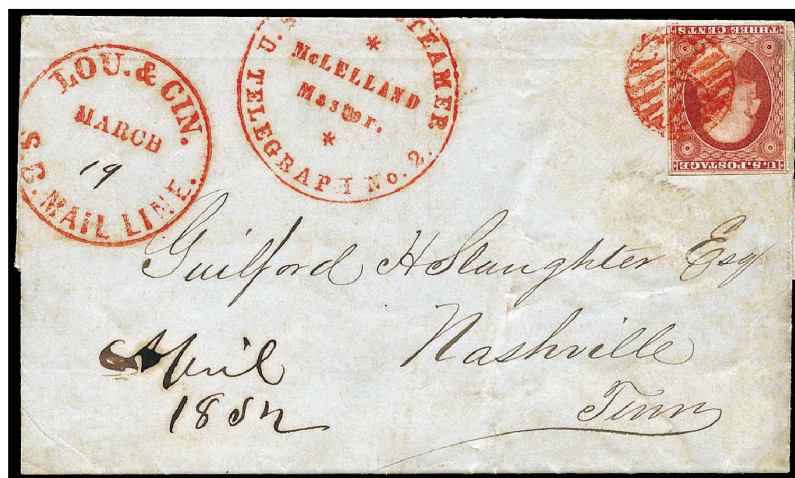 LOU. & CIN.
MARCH
19
S.B. MAIL LINE.
U. STEAMER
McLELLAND
Master.
TELEGRAPH No. 2.
THREE CENTS
U.S. POSTAGE
Guilford H Slaughter Esq
Nashville
Tenn
April